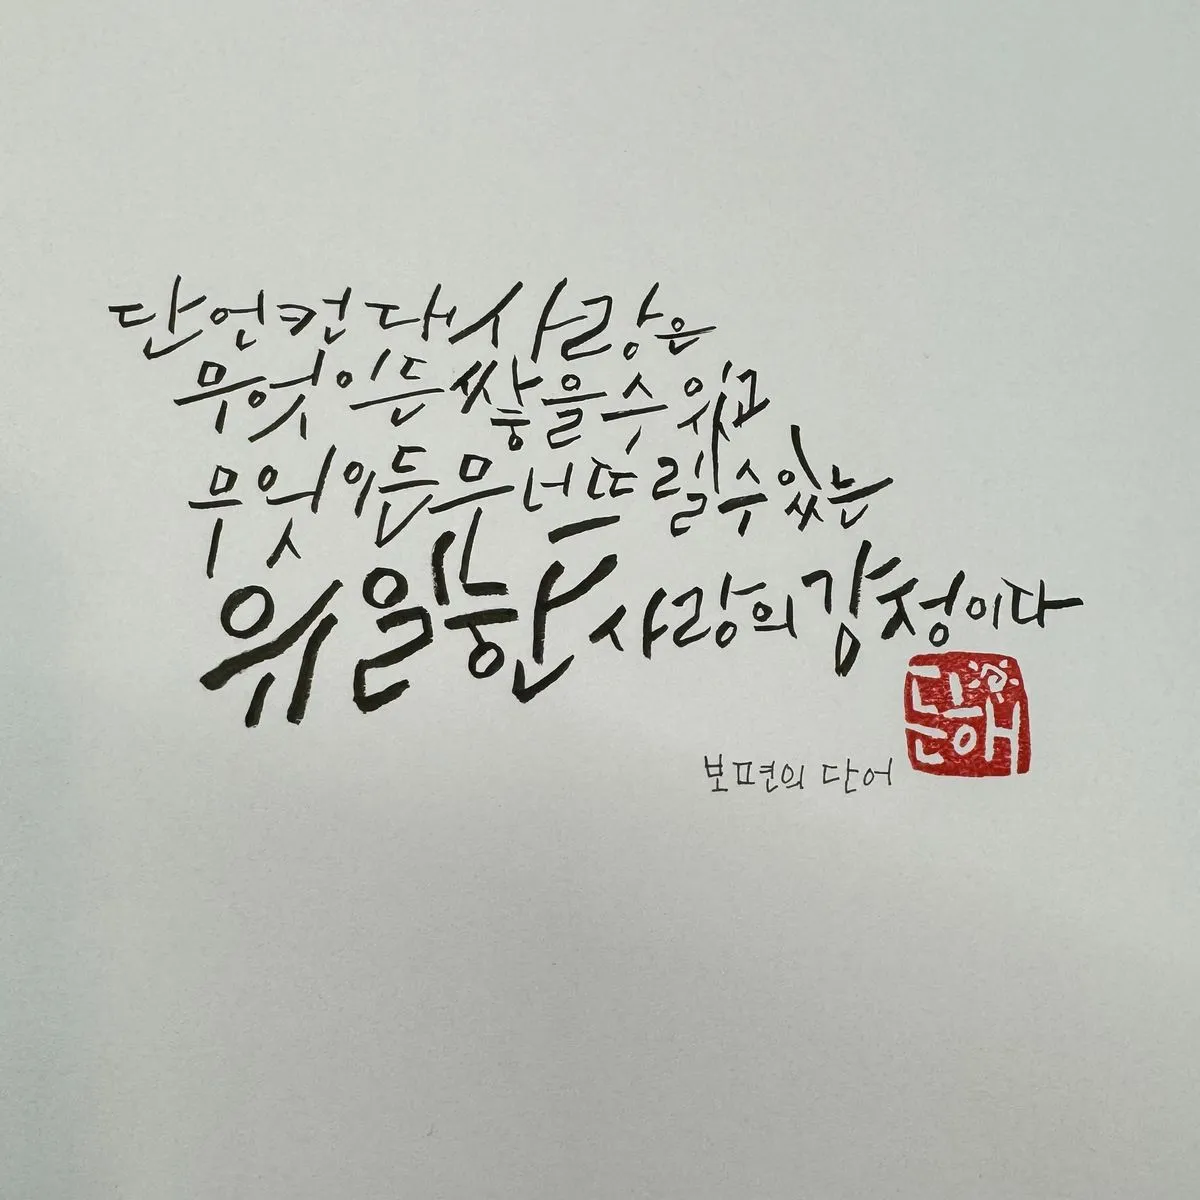 단언컨대 사랑은
무엇이든 쌓을 수 있고
무엇이든 무너뜨릴 수 있는
유일한 사랑의 감정이다
보편의 단어
단해